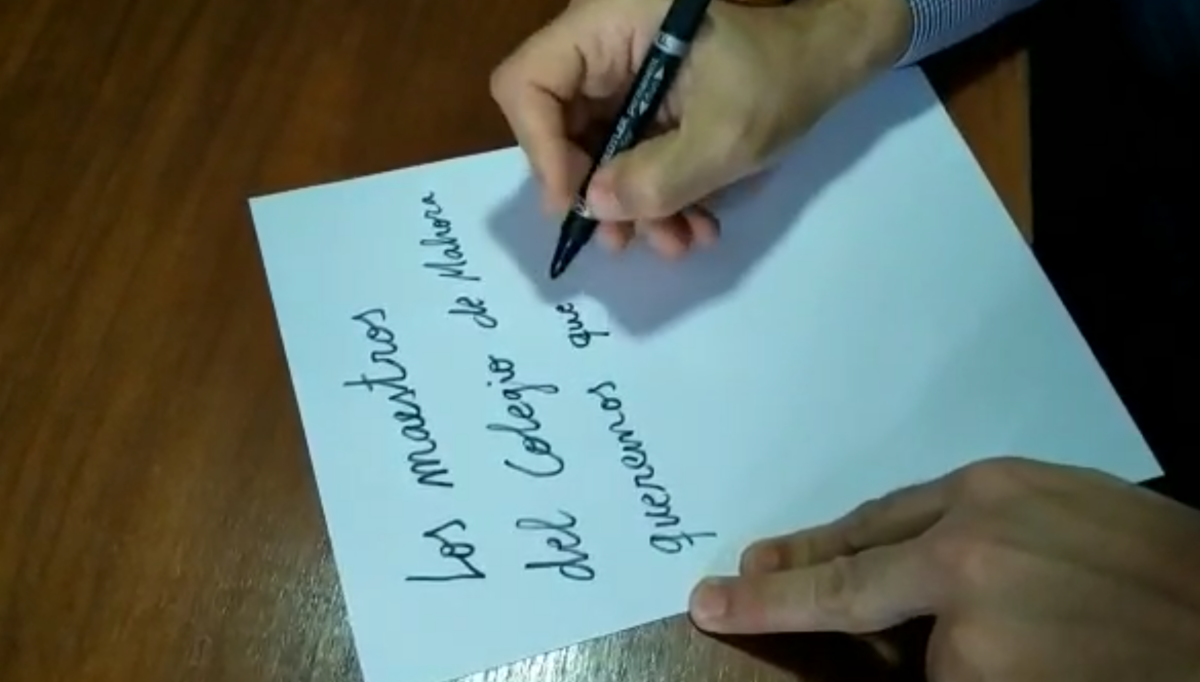 Los maestros
del Colegio de Mahora
queremos que